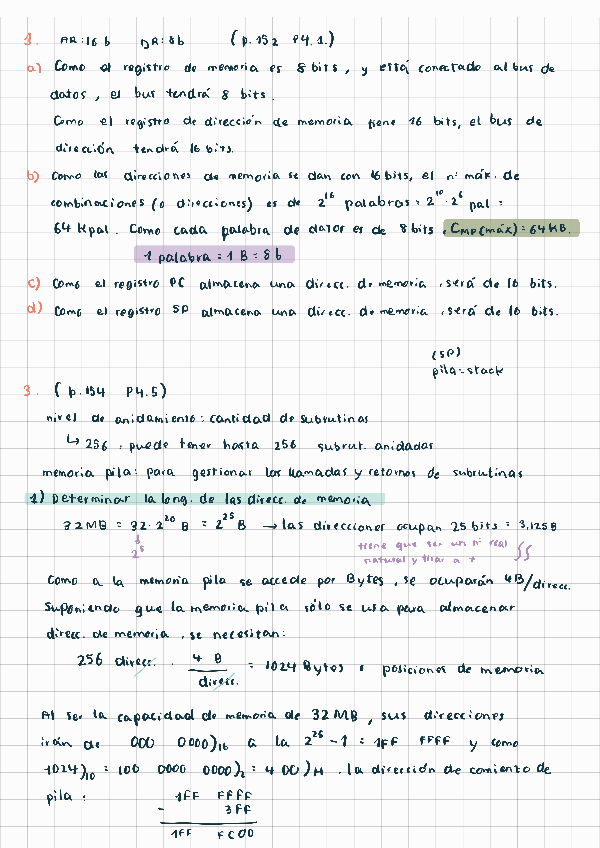 1. AR:16 b DR:8b (p.152 P4.1.)
a) Como el registro de memoria es 8 bits, y está conectado al bus de
datos, el bus tendrá 8 bits.
Como el registro de dirección de memoria tiene 16 bits, el bus de
direción tendrá 16 bits.
b) Como las direcciones de memoria se dan con 16 bits, el nº máx. de
combinaciones (o direcciones) es de 2^16 palabras = 2^10 · 2^6 pal =
64 Kpal. Como cada palabra de dator es de 8 bits, CMP(máx) = 64 KB.
1 palabra = 1 B = 8 b
c) Como el registro PC almacena una direcc. de memoria, será de 16 bits.
d) Como el registro SP almacena una direcc. de memoria, será de 16 bits.
(SP)
pila=stack
3. (p.154 P4.5)
nivel de anidamiento: cantidad de subrutinas
↳ 256, puede tener hasta 256 subrut. anidadas
memoria pila: para gestionar las llamadas y retornos de subrutinas
1) Determinar la long. de las direcc. de memoria
32MB = 32 · 2^20 B = 2^25 B → las direcciones ocupan 25 bits = 3,125B
↓
2^5
tiene que ser un nº real
natural y tirar a +
Como a la memoria pila se accede por Bytes, se ocuparán 4B/direcc.
Suponiendo que la memoria pila sólo se usa para almacenar
direcc. de memoria, se necesitan:
256 direcc. · 4 B / direcc. = 1024 Bytes o posiciones de memoria
Al ser la capacidad de memoria de 32MB, sus direcciones
irán de 000 0000)16 a la 2^25 - 1 = 1FF FFFF y como
1024)10 = 100 0000 0000)2 = 400)H, la dirección de comiento de
pila:
1FF FFFF
- 3FF
1FF FC00